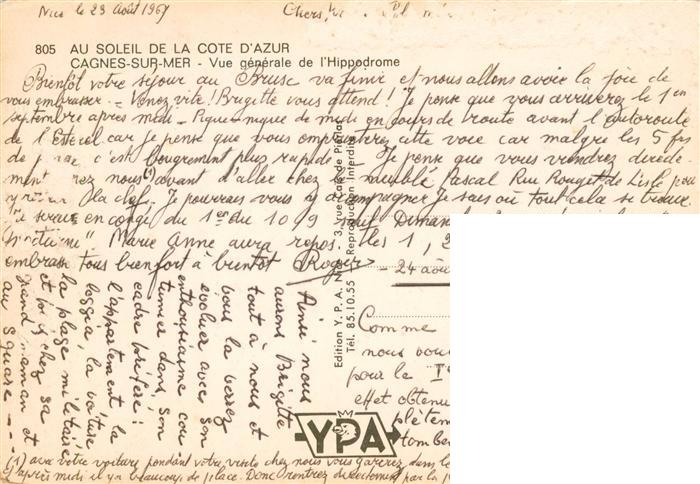 Nice le 23 Août 1967
Chers
805 AU SOLEIL DE LA COTE D'AZUR
CAGNES-SUR-MER - Vue générale de l'Hippodrome
Bientôt votre séjour au Brusc va finir et nous allons avoir la joie de
vous embrasser - Venez vite! Brigitte vous attend! Je pense que vous arriverez le 1er
septembre après midi - Pique-nique de midi en cours de route avant l'autoroute
de l'Esterel car je pense que vous emprunterez cette voie car malgré les 5 frs
de c'est bougrement plus rapide - Je pense que vous viendrez directe-
ment chez nous (1) avant d'aller chez le meublé Pascal Rue Rouget de Lisle pour
la clef. Je pourrais vous y accompagner Je sais où tout cela se trouve.
Je serai en congé du 1er au 10 9 sauf Dimanche
nocturne" Marie Anne aura repos les 1, 2
embrasse tous bien fort à bientôt Roger
- 24 aoû
Ainsi nous
aurons Brigitte
tout à nous et
vous la verrez
évoluer avec son
enthousiasme cou
tumier dans son
cadre préféré:
l'appartement la
loggia, la voiture
la plage militaire
et puis chez sa
grand maman et
au square ---
Edition Y. P. A. 3, rue
Tél. 85.10.55 Reproduction Interdite
Comme
nous vou
pour le 1er
effet obtenu
plètem
tomber
YPA
(1) avec votre voiture pendant votre visite chez nous vous garerez dans le
après midi il y a beaucoup de place. Donc rentrez directement par la